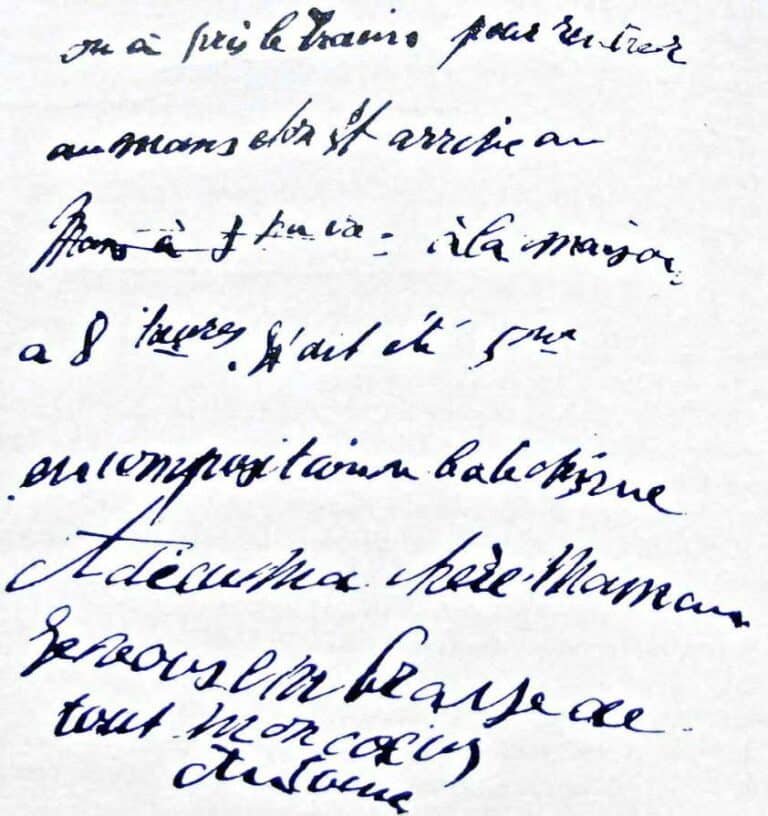 on à pris le train pour rentrer
au mans et on est arrivé au
Mans à à la maison
a 8 heures. J'ait été 5me
en composition catechisme
Adieu Ma chère Maman
Je vous embrasse de
tout mon cœur
Antoine